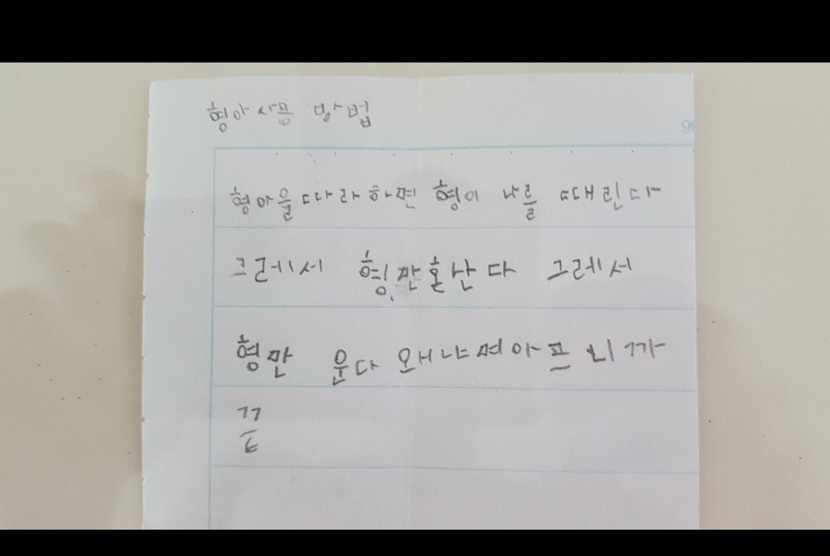 형아사용 방법
형아을따라하면 형이 나를 때린다
그레서 형만혼난다 그레서
형만 운다 왜냐며아프니까
끝